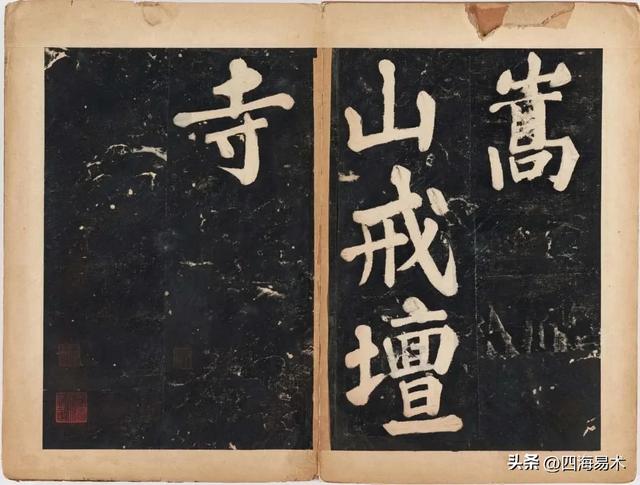 嵩
山戒壇
寺
头条 @四海易木